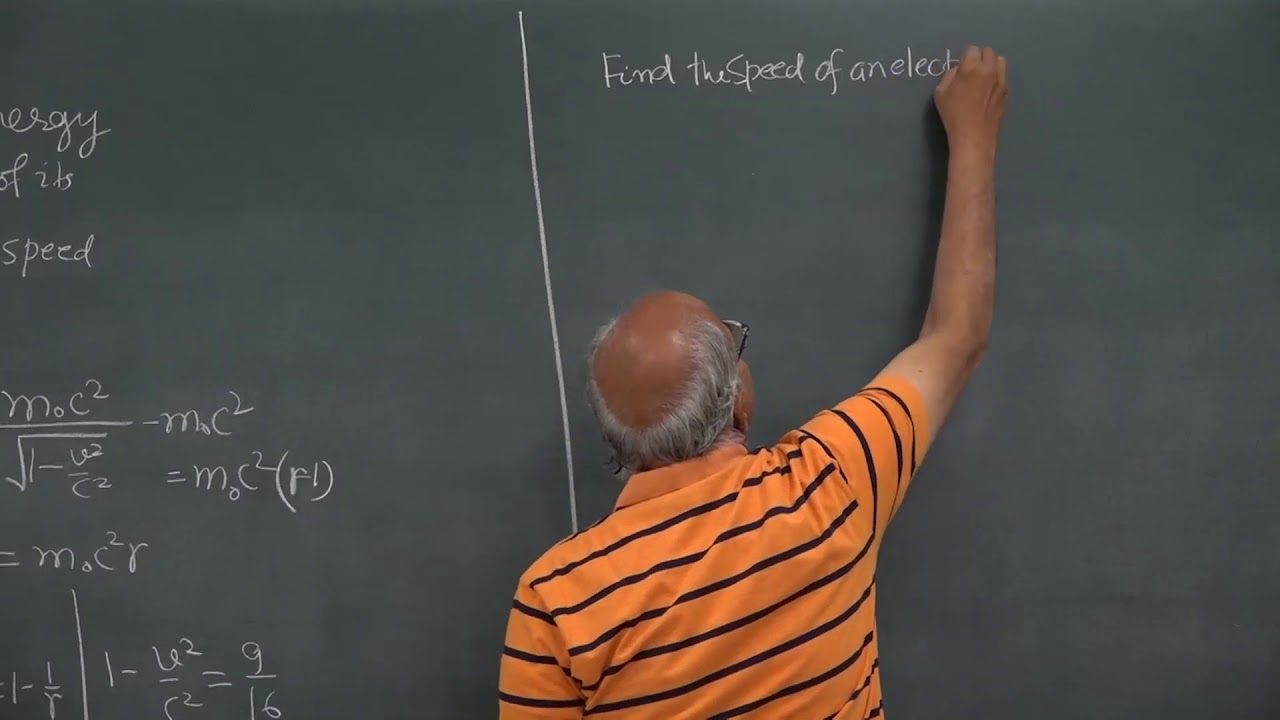 nergy
of its
speed
m₀c² / √(1 - v²/c²) - m₀c²
= m₀c²(r-1)
= m₀c²r
=1 - 1/r
1 - v²/c² = 9/16
Find the speed of an elect